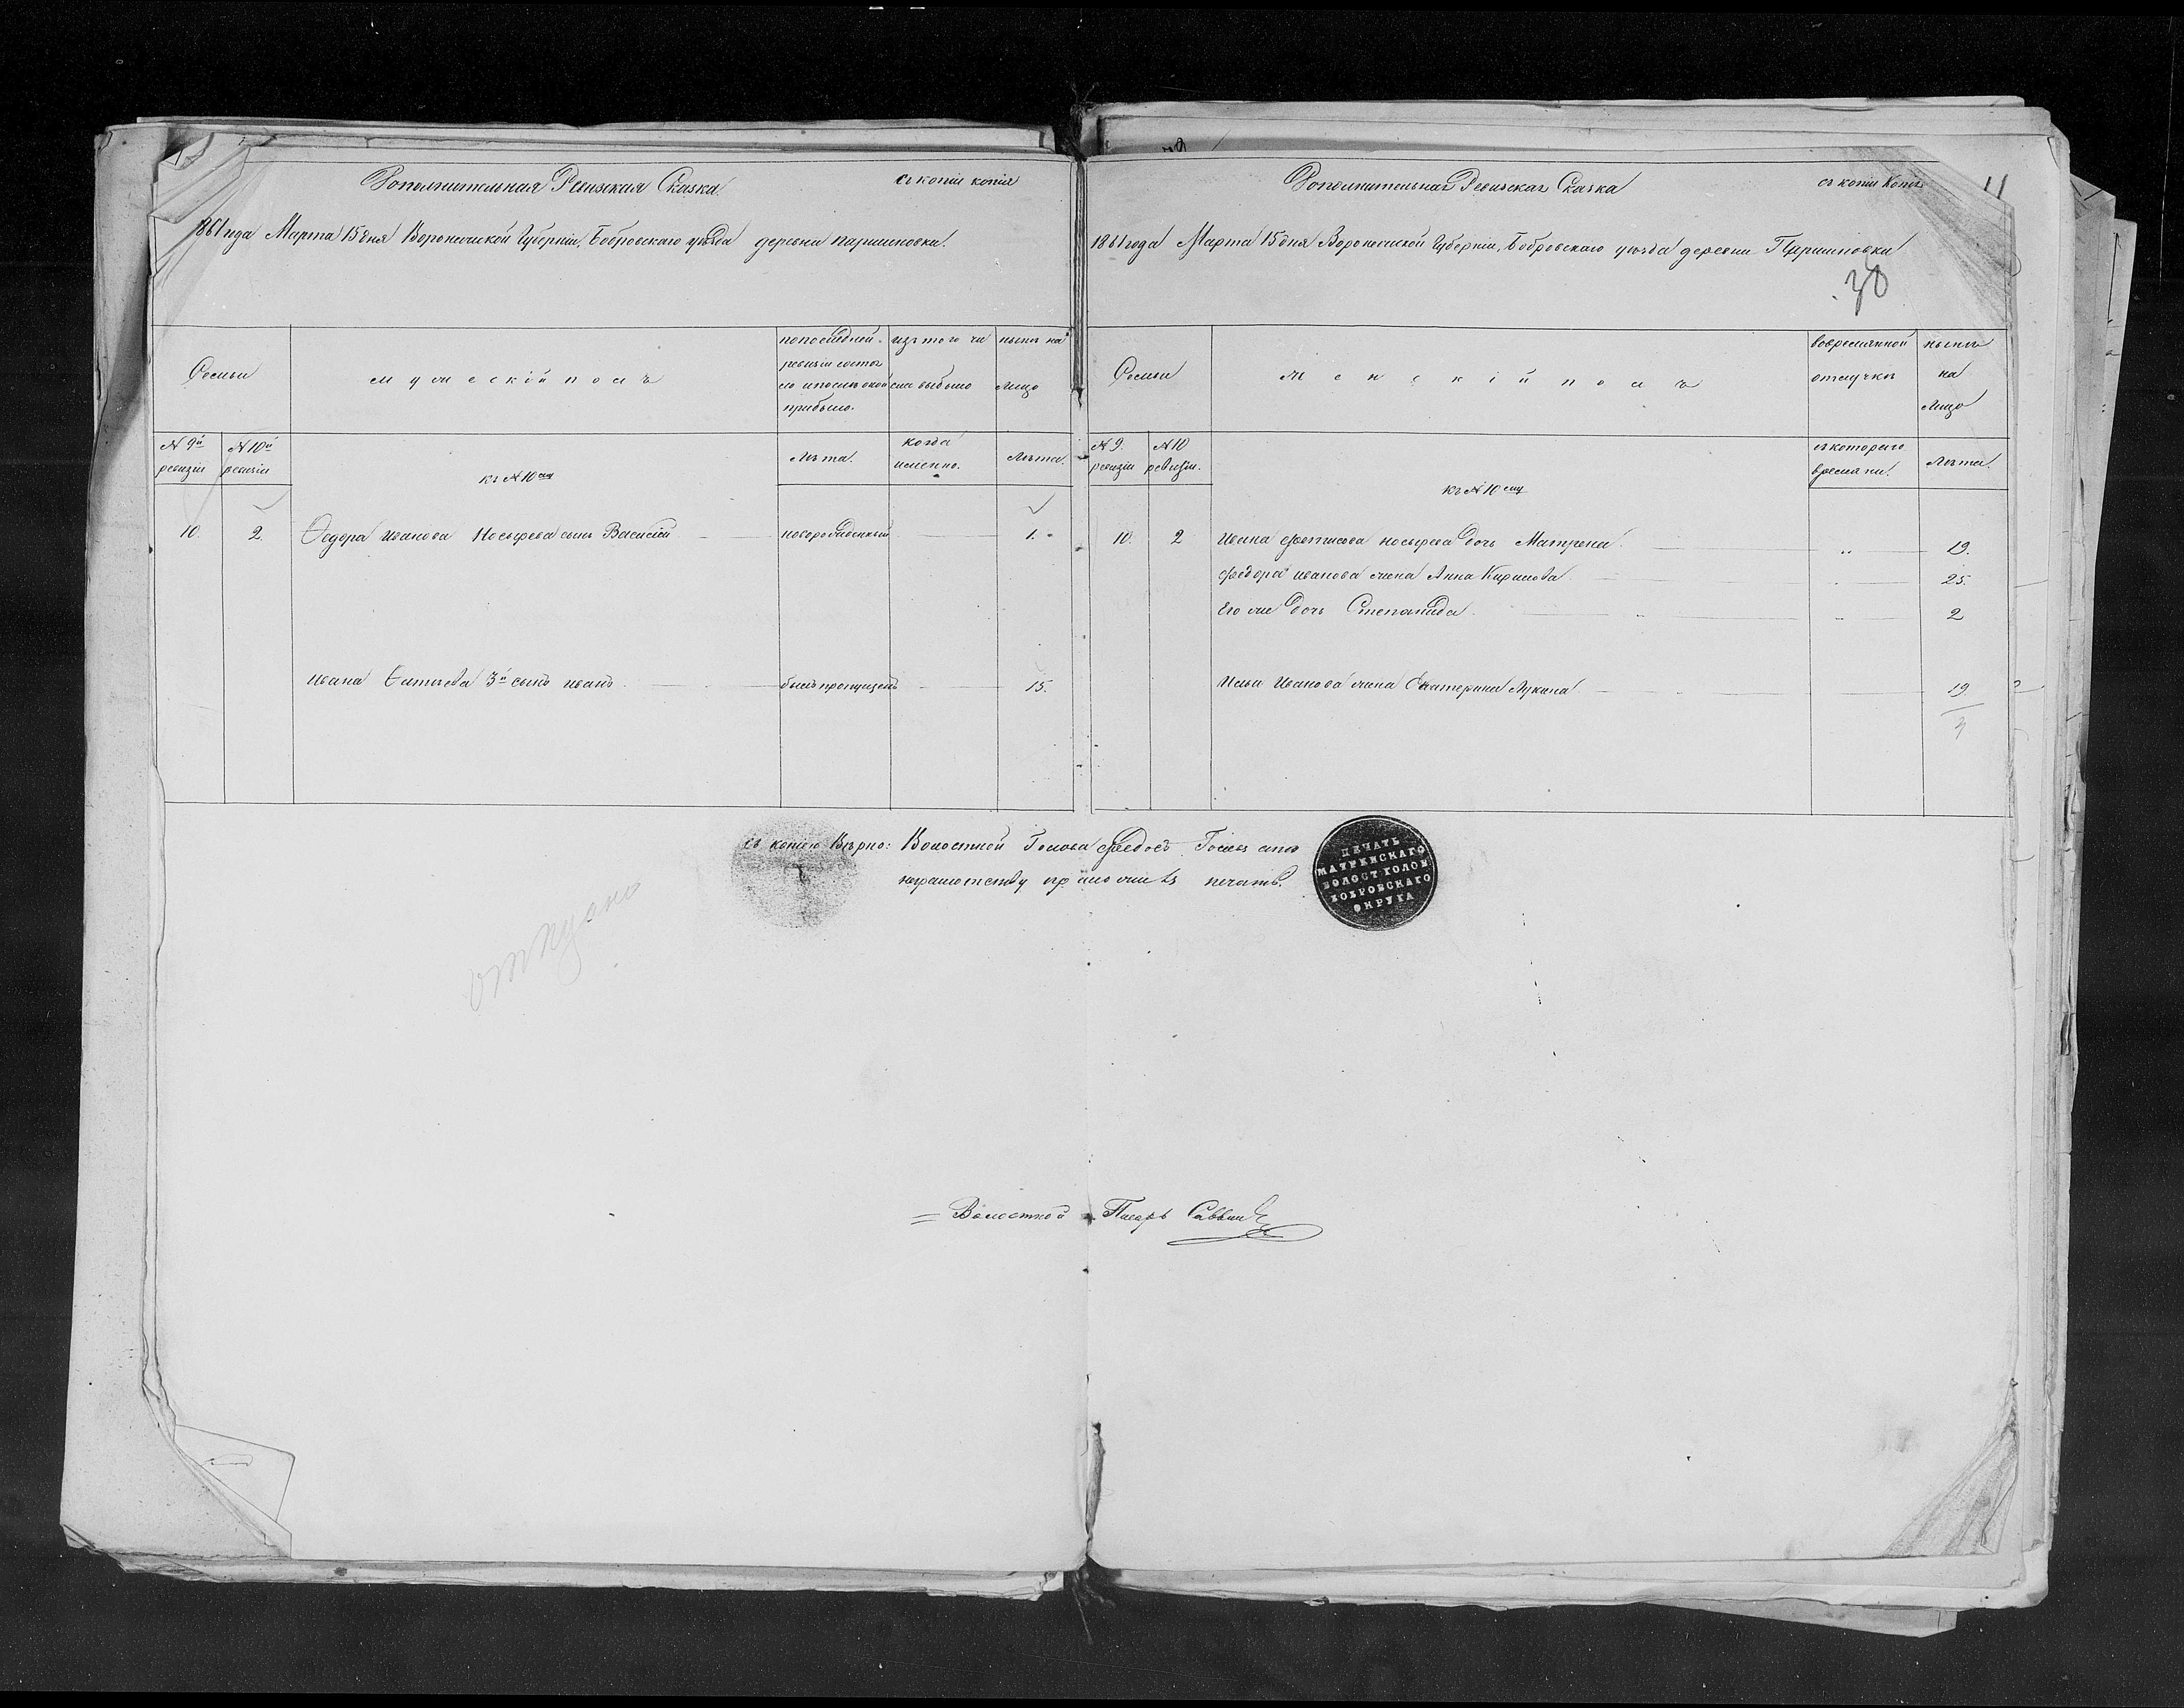 Дополнительная Ревизская Сказка
съ копіи копія
1861 года Марта 15 дня Воронежской Губерніи, Бобровскаго уѣзда деревни паршиновки.
Фемьи
мужескій полъ
по последней
ревизіи состоя
ло и после оной
прибыло.
изъ того чи
сла выбыло
нынѣ на
Лицо
N 9й
ревизіи
N 10й
ревизіи
къ N 10му
Лѣта.
когда
именно.
Лѣта.
10.
2.
Федора Иванова Носырева сынъ Василій
новорожденный
1.
Ивана 3й сынъ иванъ
былъ пропущенъ
15.
Дополнительная Ревизская Сказка
съ копіи Копія
11
1861 года Марта 15 дня Воронежской Губерніи, Бобровскаго уѣзда деревни Паршиновки
30
Фемьи
женскій полъ
во временной
отлучкѣ
нынѣ
на
Лицо
N 9.
ревизіи
N 10
ревизіи.
къ N 10му
съ котораго
времяни.
Лѣта.
10.
2
Ивана фетисова носырева дочь Матрена
19.
федора иванова жена Анна Карпова
25.
Его же дочь Степанида
2
Ильи Иванова жена Екатерина Лукина
19.
4
съ копіею Вѣрно: Волостной Голова федосъ а по
неграмотству приложилъ печать.
ПЕЧАТЬ
ВОЛОСТ ГОЛОВ
БОБРОВСКАГО
ОКРУГА
Волостной Писарь Саввин